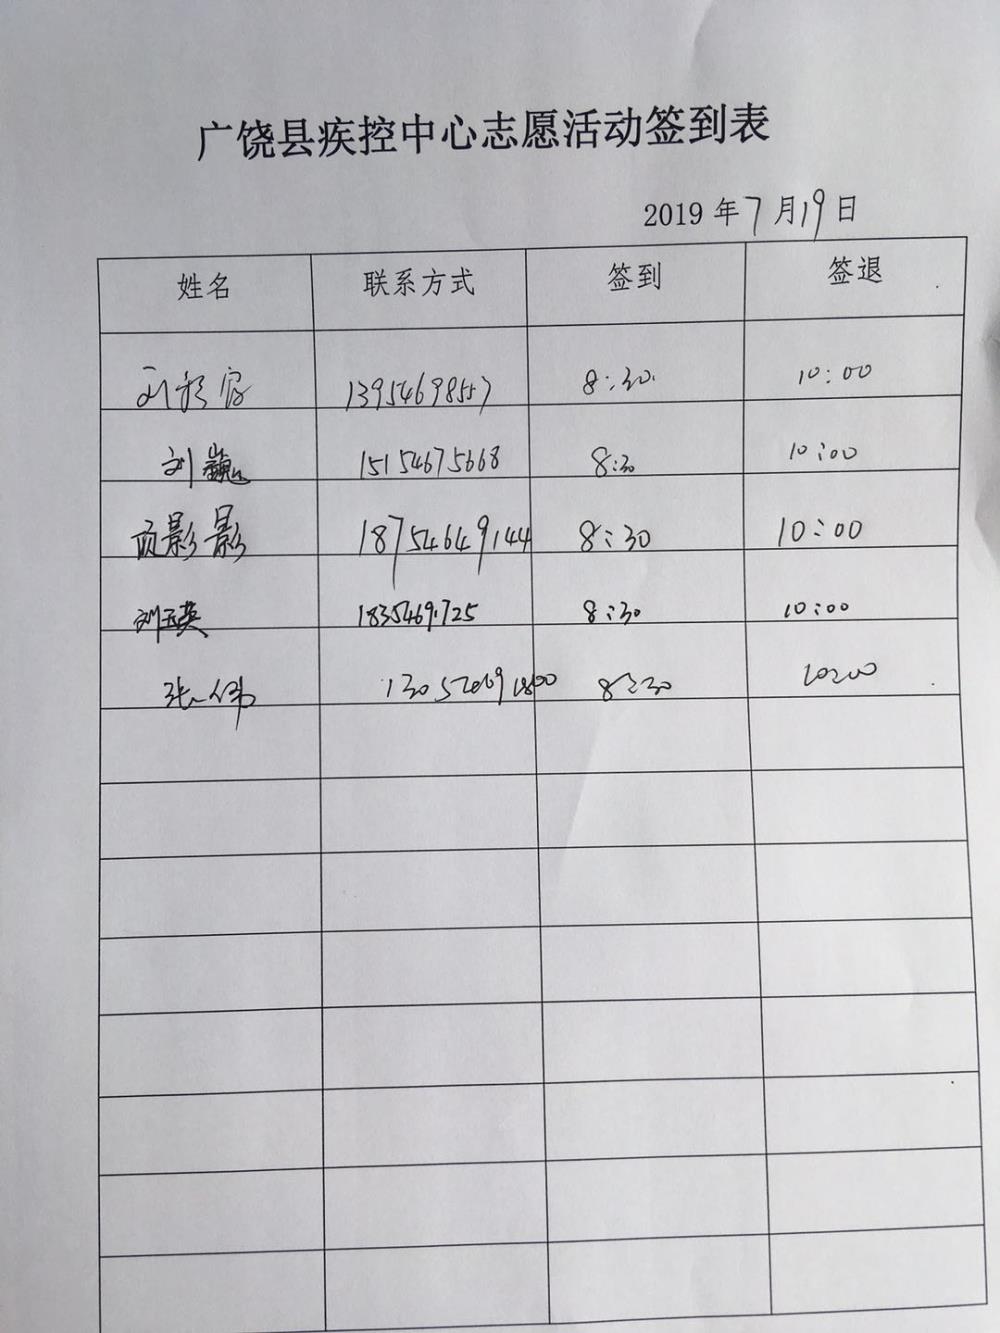 广饶县疾控中心志愿活动签到表
2019年7月19日
姓名 联系方式 签到 签退
13954698557 8:30 10:00
刘巍 15154675668 8:30 10:00
顾影影 18754649144 8:30 10:00
刘玉英 8:30 10:00
张伟 8:30 10:00